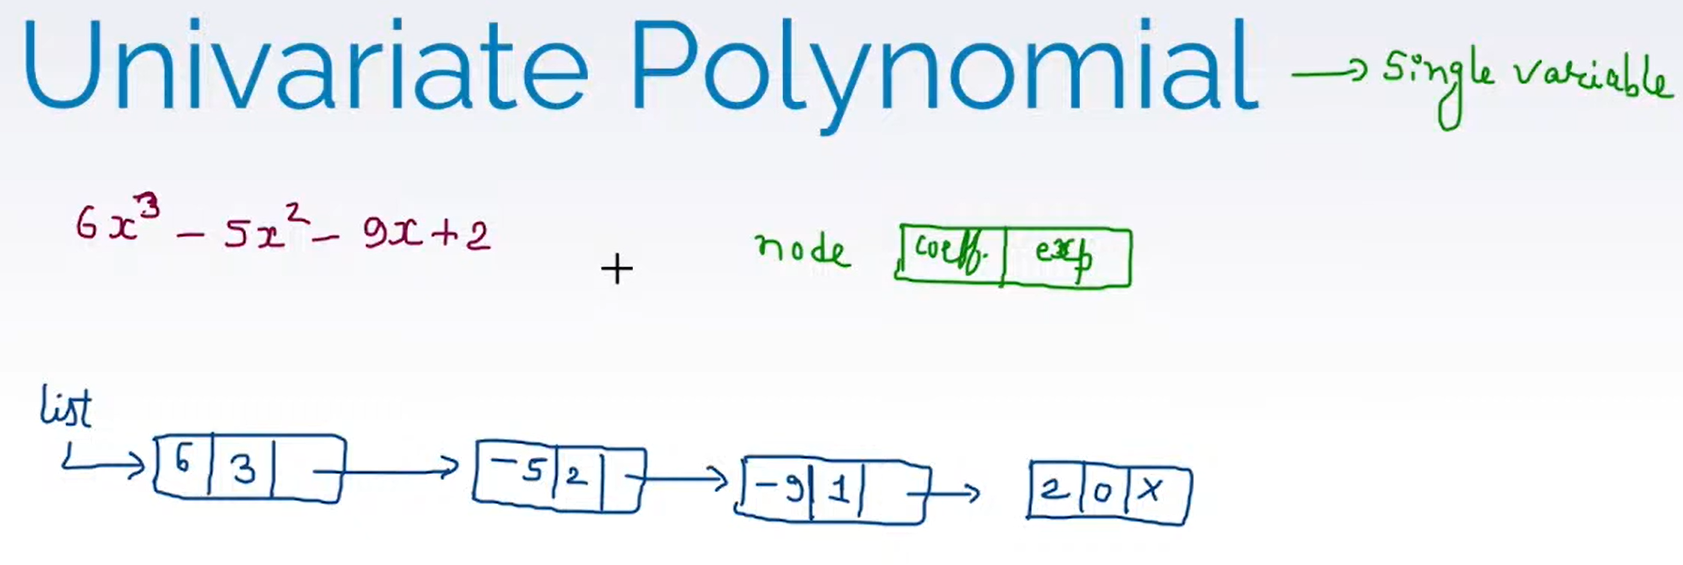 Univariate Polynomial → Single variable
6x³ - 5x² - 9x + 2
node coeff. exp
list
6 3 -5 2 -9 1 2 0 X